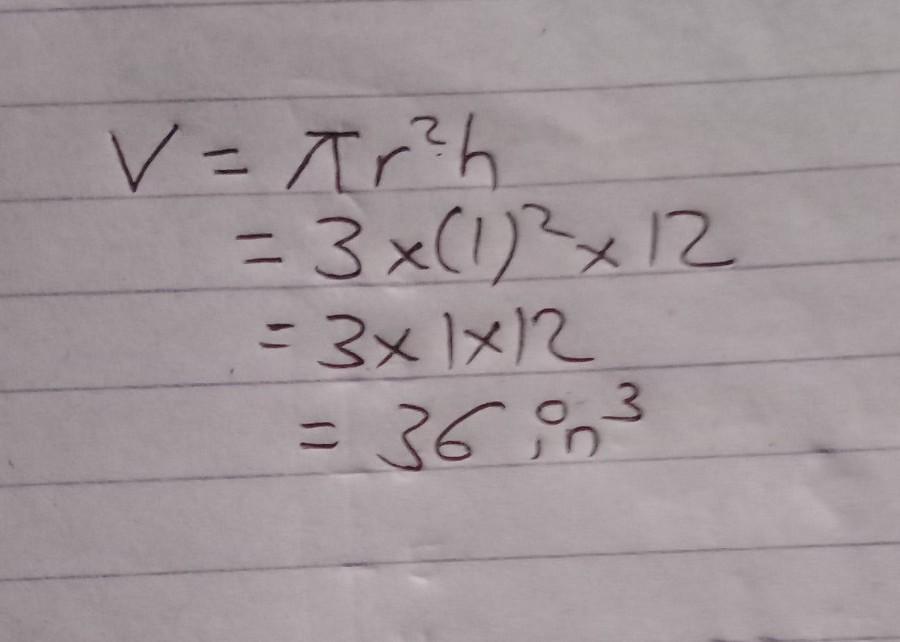 V = πr²h
= 3 × (1)² × 12
= 3 × 1 × 12
= 36 in³